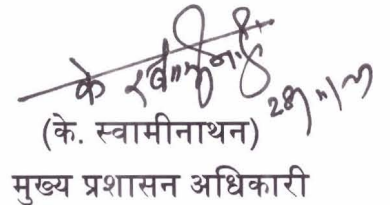 के स्वामीनाथन
(के. स्वामीनाथन)
मुख्य प्रशासन अधिकारी